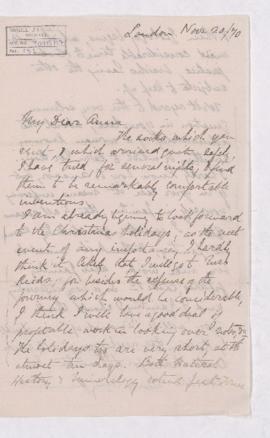 London Nov. 20/70
My Dear Annie
The socks which you
sent, & which arrived quite safely,
I have tried for several nights, & find
them to be remarkably comfortable
inventions.
I am already beginning to look forward
to the Christmas holidays, as the next
event of any importance. I hardly
think it likely that I will go to
for besides the expense of the
journey which would be considerable,
I think I will have a good deal of
profitable work in looking over notes, &
the holidays too are very short, at the
utmost ten days. Both Natural
History &